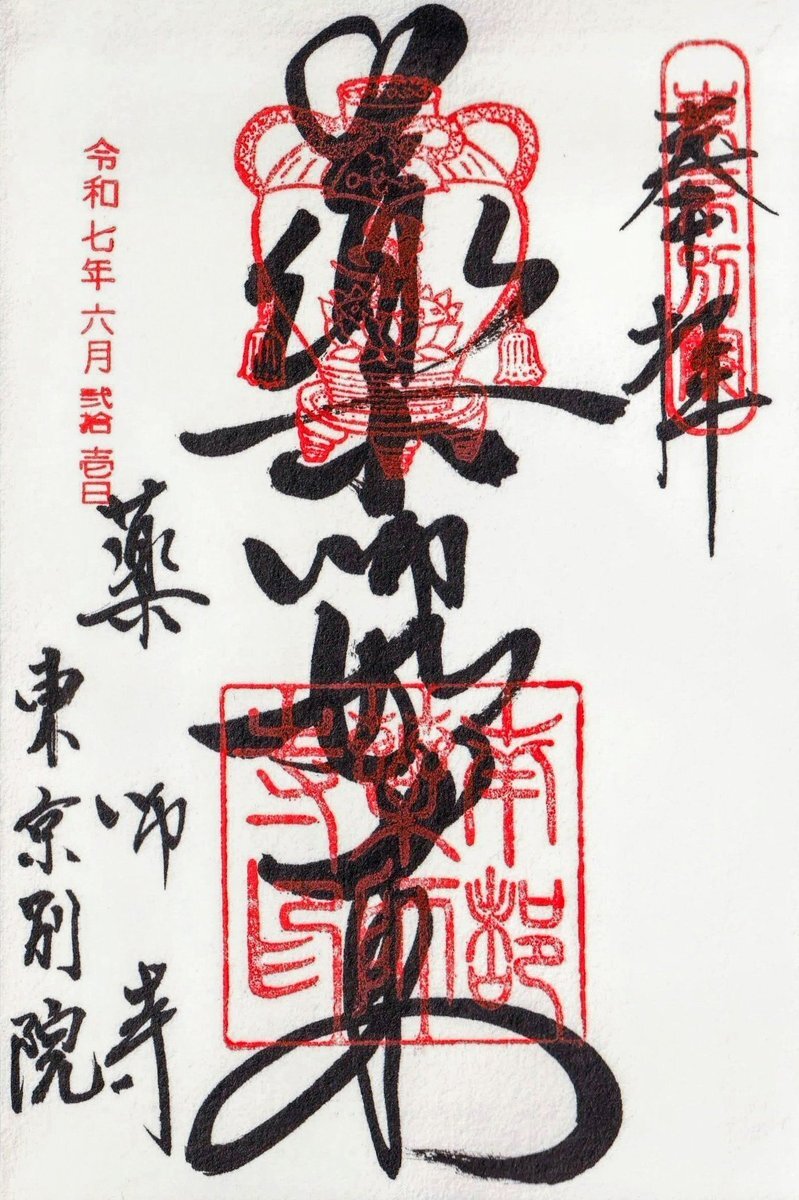 奉拝
東京別院
薬師如来
南都
薬師
寺印
薬師寺
東京別院
令和七年六月弐拾壱日